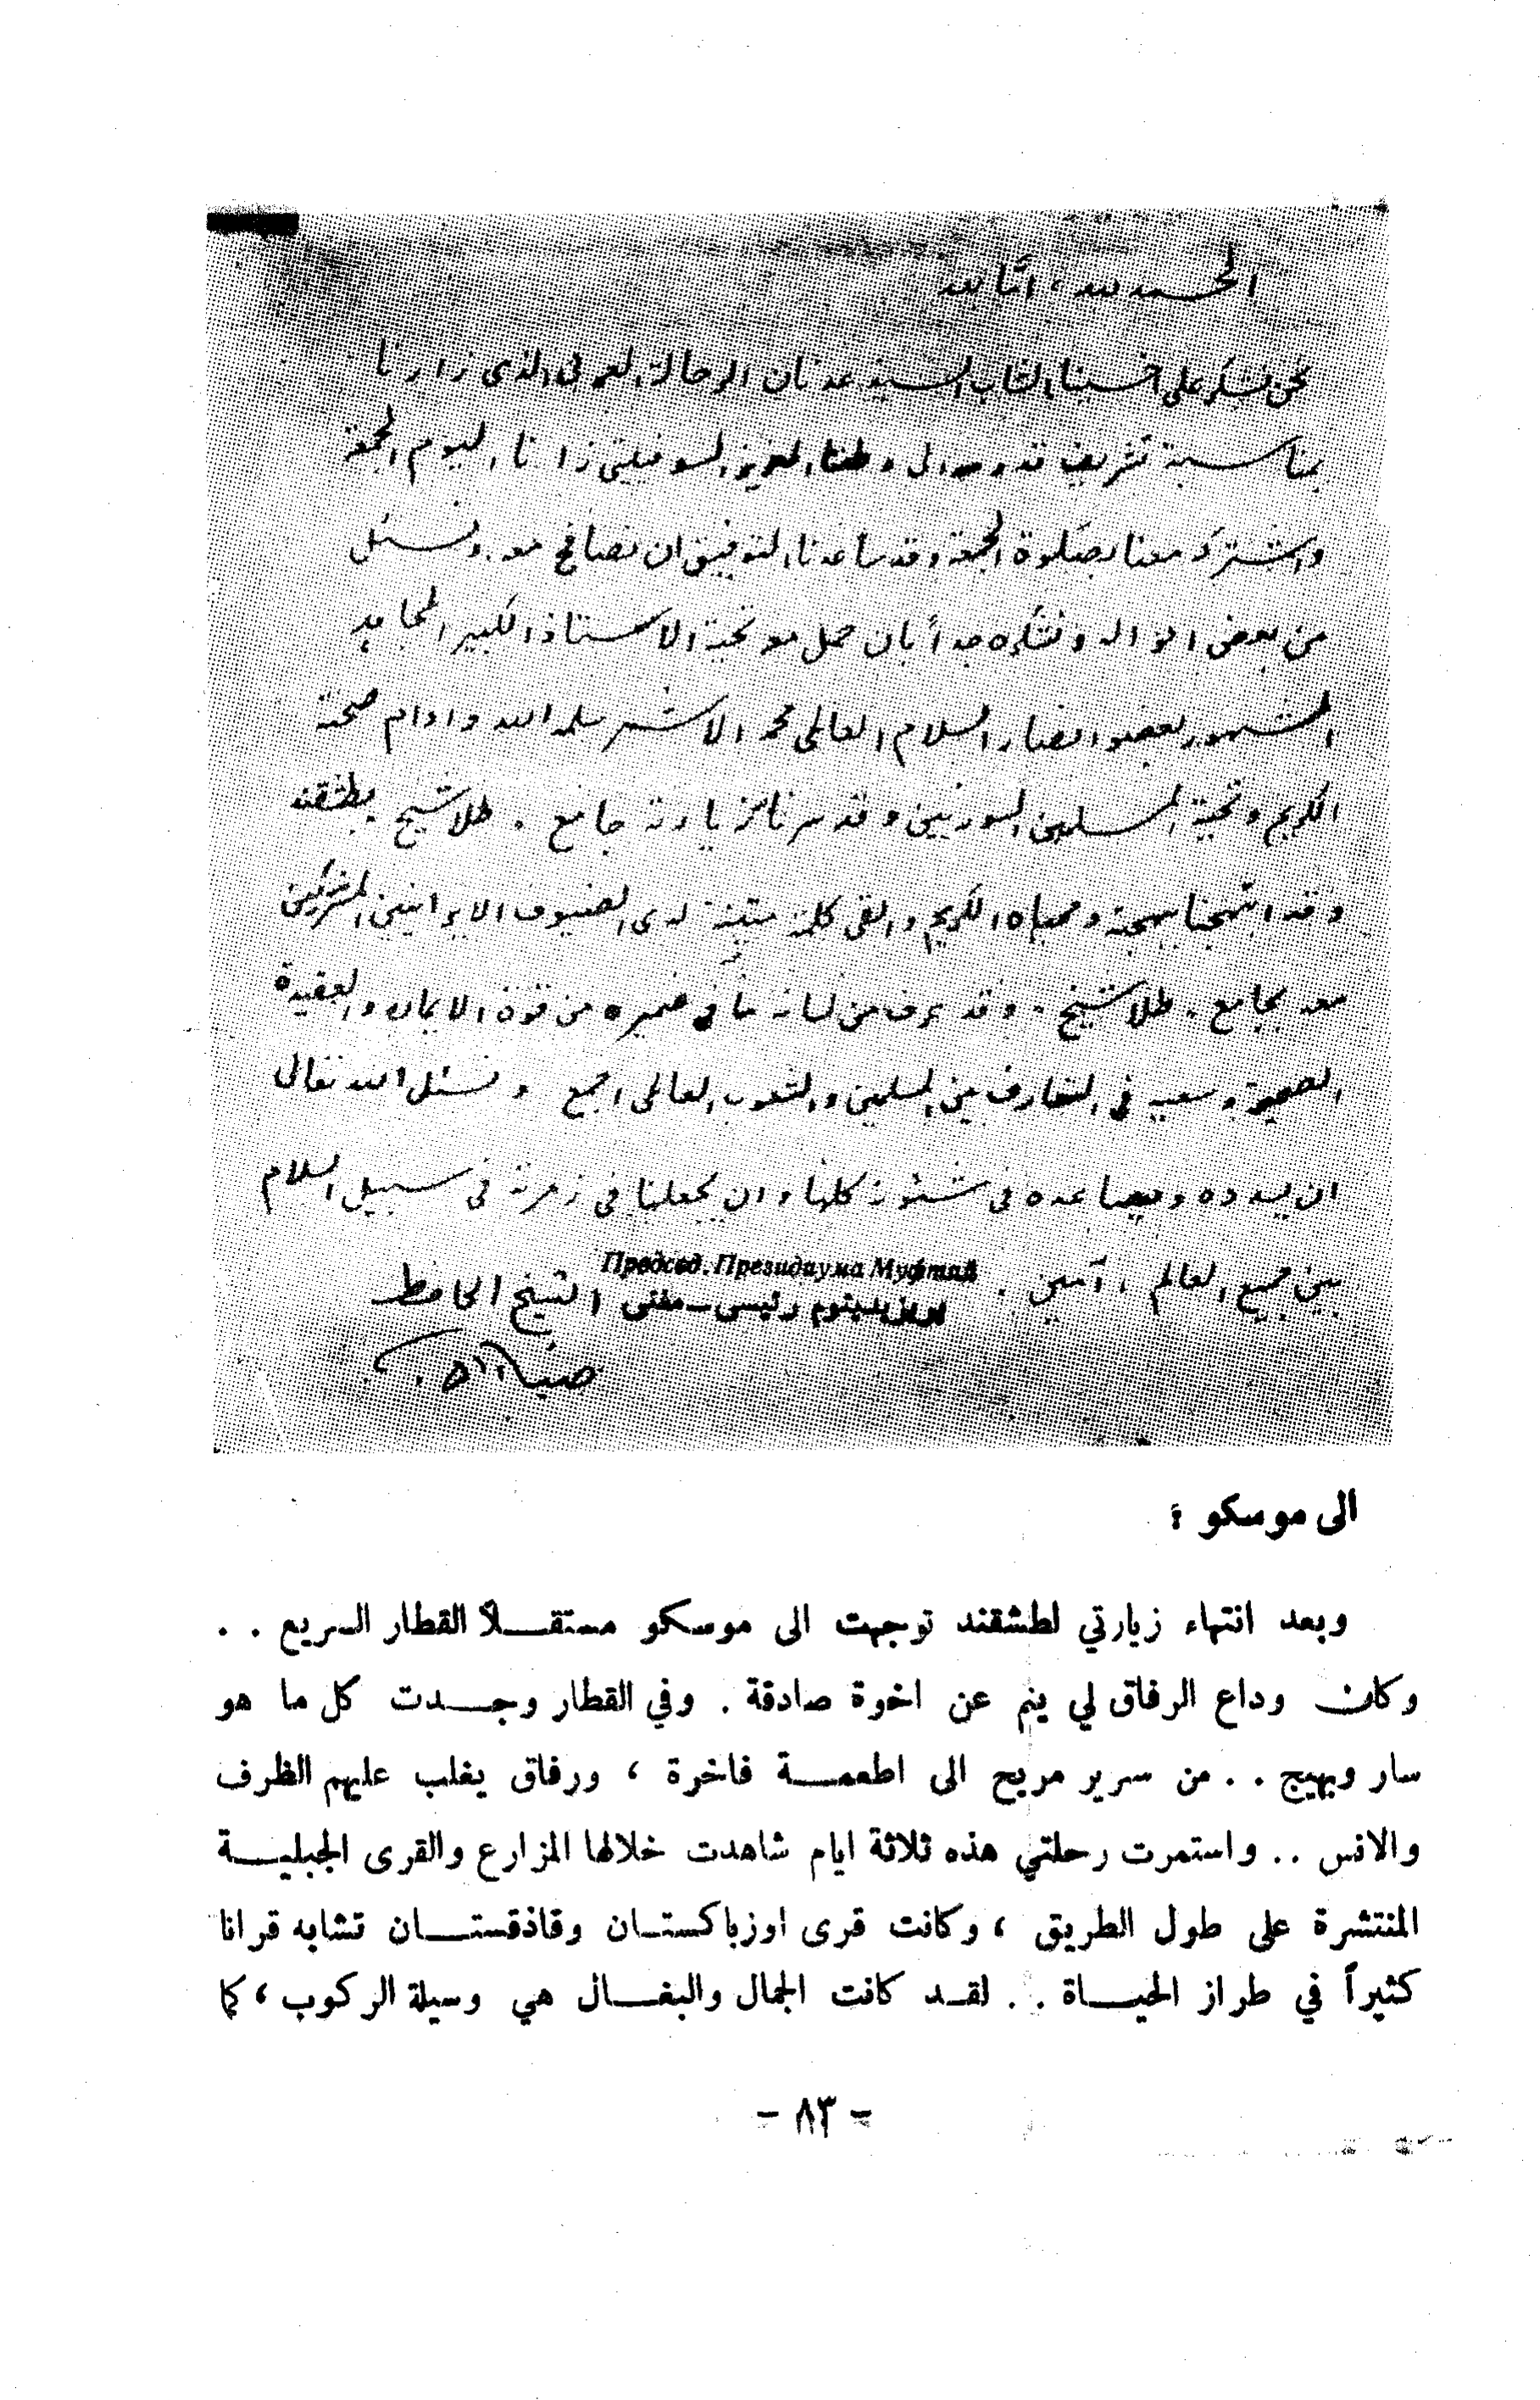 الحمد لله ، أمّا بعد
نحن نشكر على ضيفنا الشاب السيد عدنان الرحالة العربي الذي زارنا
بمناسبة تشريف قدومه الى وطننا العزيز السوفيتي زارنا اليوم الجمعة
واشترك معنا بصلوة الجمعة وقد ساعدنا التوفيق ان نصافح معه . ونسئل
من بعض احواله ونشكره جداً بان حمل معه تحية الاستاذ الكبير المجاهد
المشهور بعضو انصار السلام العالمي محمد الاشمر سلمه الله وادام صحته
الكريم وتحية المسلمين السوريين وقد سرنا زيارته جامع . طلا شيخ بطشقند
وقد ابتهجنا ببهجته ومحياه الكريم والقى كلمة متينة لدى الضيوف الايرانيين المشتركين
معه بجامع . طلا شيخ . وقد عرف من لسانه ما في ضميره من قوة الايمان والعقيدة
الصحيحة وسعيه في التعارف بين المسلمين والشعوب العالمي اجمع ونسئل الله تعالى
ان يسدده ويساعده في شئونه كلها وان يجعلنا في زمرته في سبيل السلام
بين جميع العالم ، آمين .
Председ. Президиума Муфтий
رئيسى – مفتى الشيخ الحافظ
الى موسكو :
وبعد انتهاء زيارتي لطشقند توجهت الى موسكو مستقــلاً القطار السريع . .
وكان وداع الرفاق لي ينم عن اخوة صادقة . وفي القطار وجــدت كل ما هو
سار وبهيج . . من سرير مريح الى اطعمــة فاخرة ، ورفاق يغلب عليهم الظرف
والانس . . واستمرت رحلتي هذه ثلاثة ايام شاهدت خلالها المزارع والقرى الجبليــة
المنتشرة على طول الطريق ، وكانت قرى اوزباكستــان وقاذقستــان تشابه قرانا
كثيراً في طراز الحيــاة . . لقــد كانت الجمال والبغــال هي وسيلة الركوب ، كما
– ٨٣ –